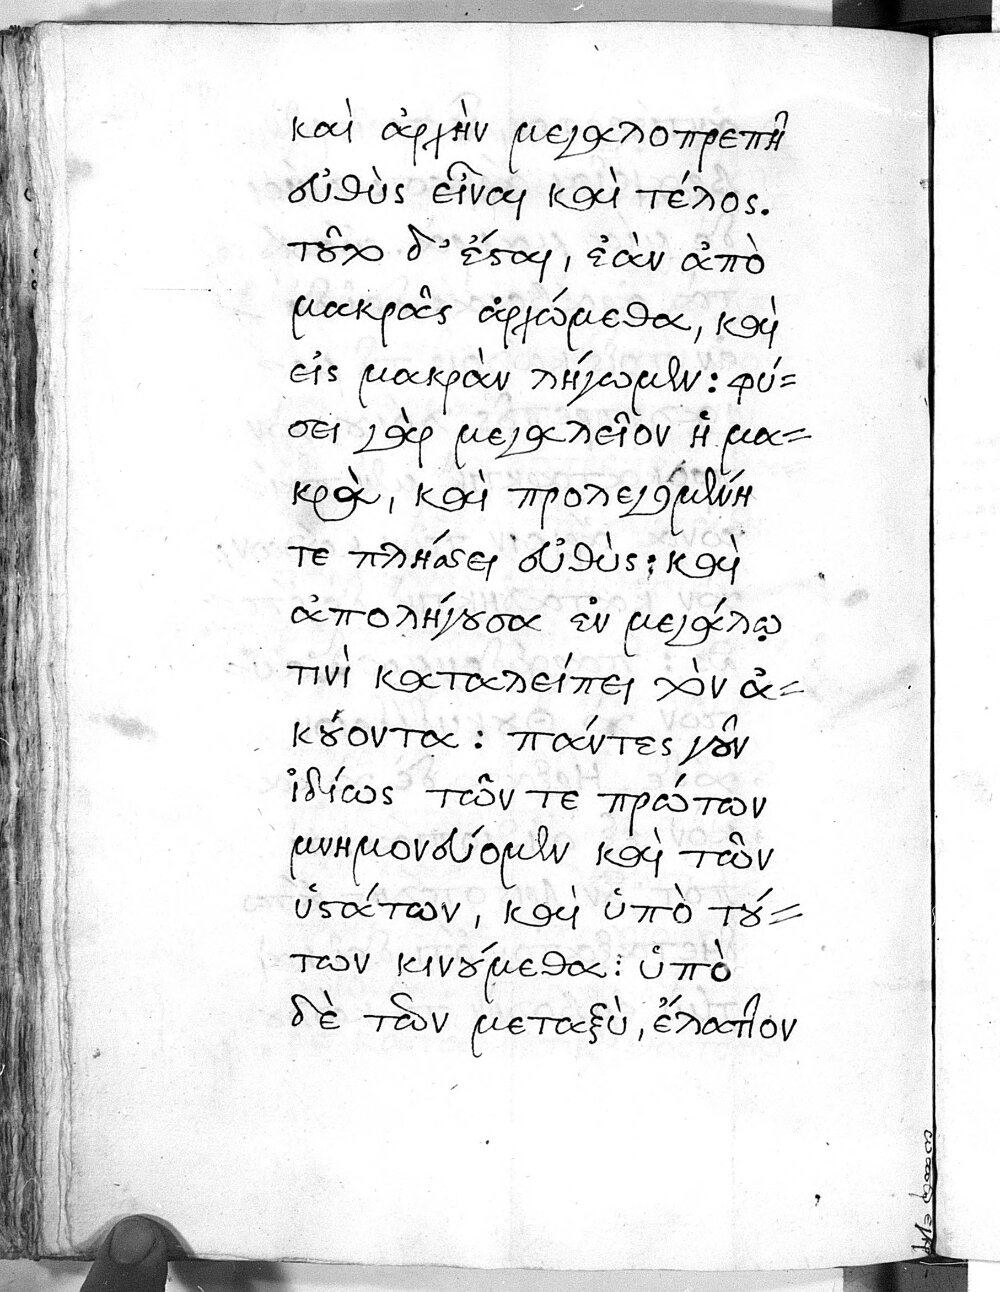 καὶ ἀρχὴν μεγαλοπρεπῆ
εὐθὺς εἶναι καὶ τέλος.
τοῦτο δ' ἔσται, ἐὰν ἀπὸ
μακρᾶς ἀρχώμεθα, καὶ
εἰς μακρὰν λήγωμεν: φύ=
σει γὰρ μεγαλεῖον ἡ μα=
κρὰ, καὶ προλεγομένη
τε πλήσσει εὐθὺς: καὶ
ἀπολήγουσα ἐν μεγάλῳ
τινὶ καταλείπει τὸν ἀ=
κούοντα: πάντες γοῦν
ἰδίως τῶν τε πρώτων
μνημονεύομεν καὶ τῶν
ὑστάτων, καὶ ὑπὸ τού=
των κινούμεθα: ὑπὸ
δὲ τῶν μεταξὺ, ἔλαττον